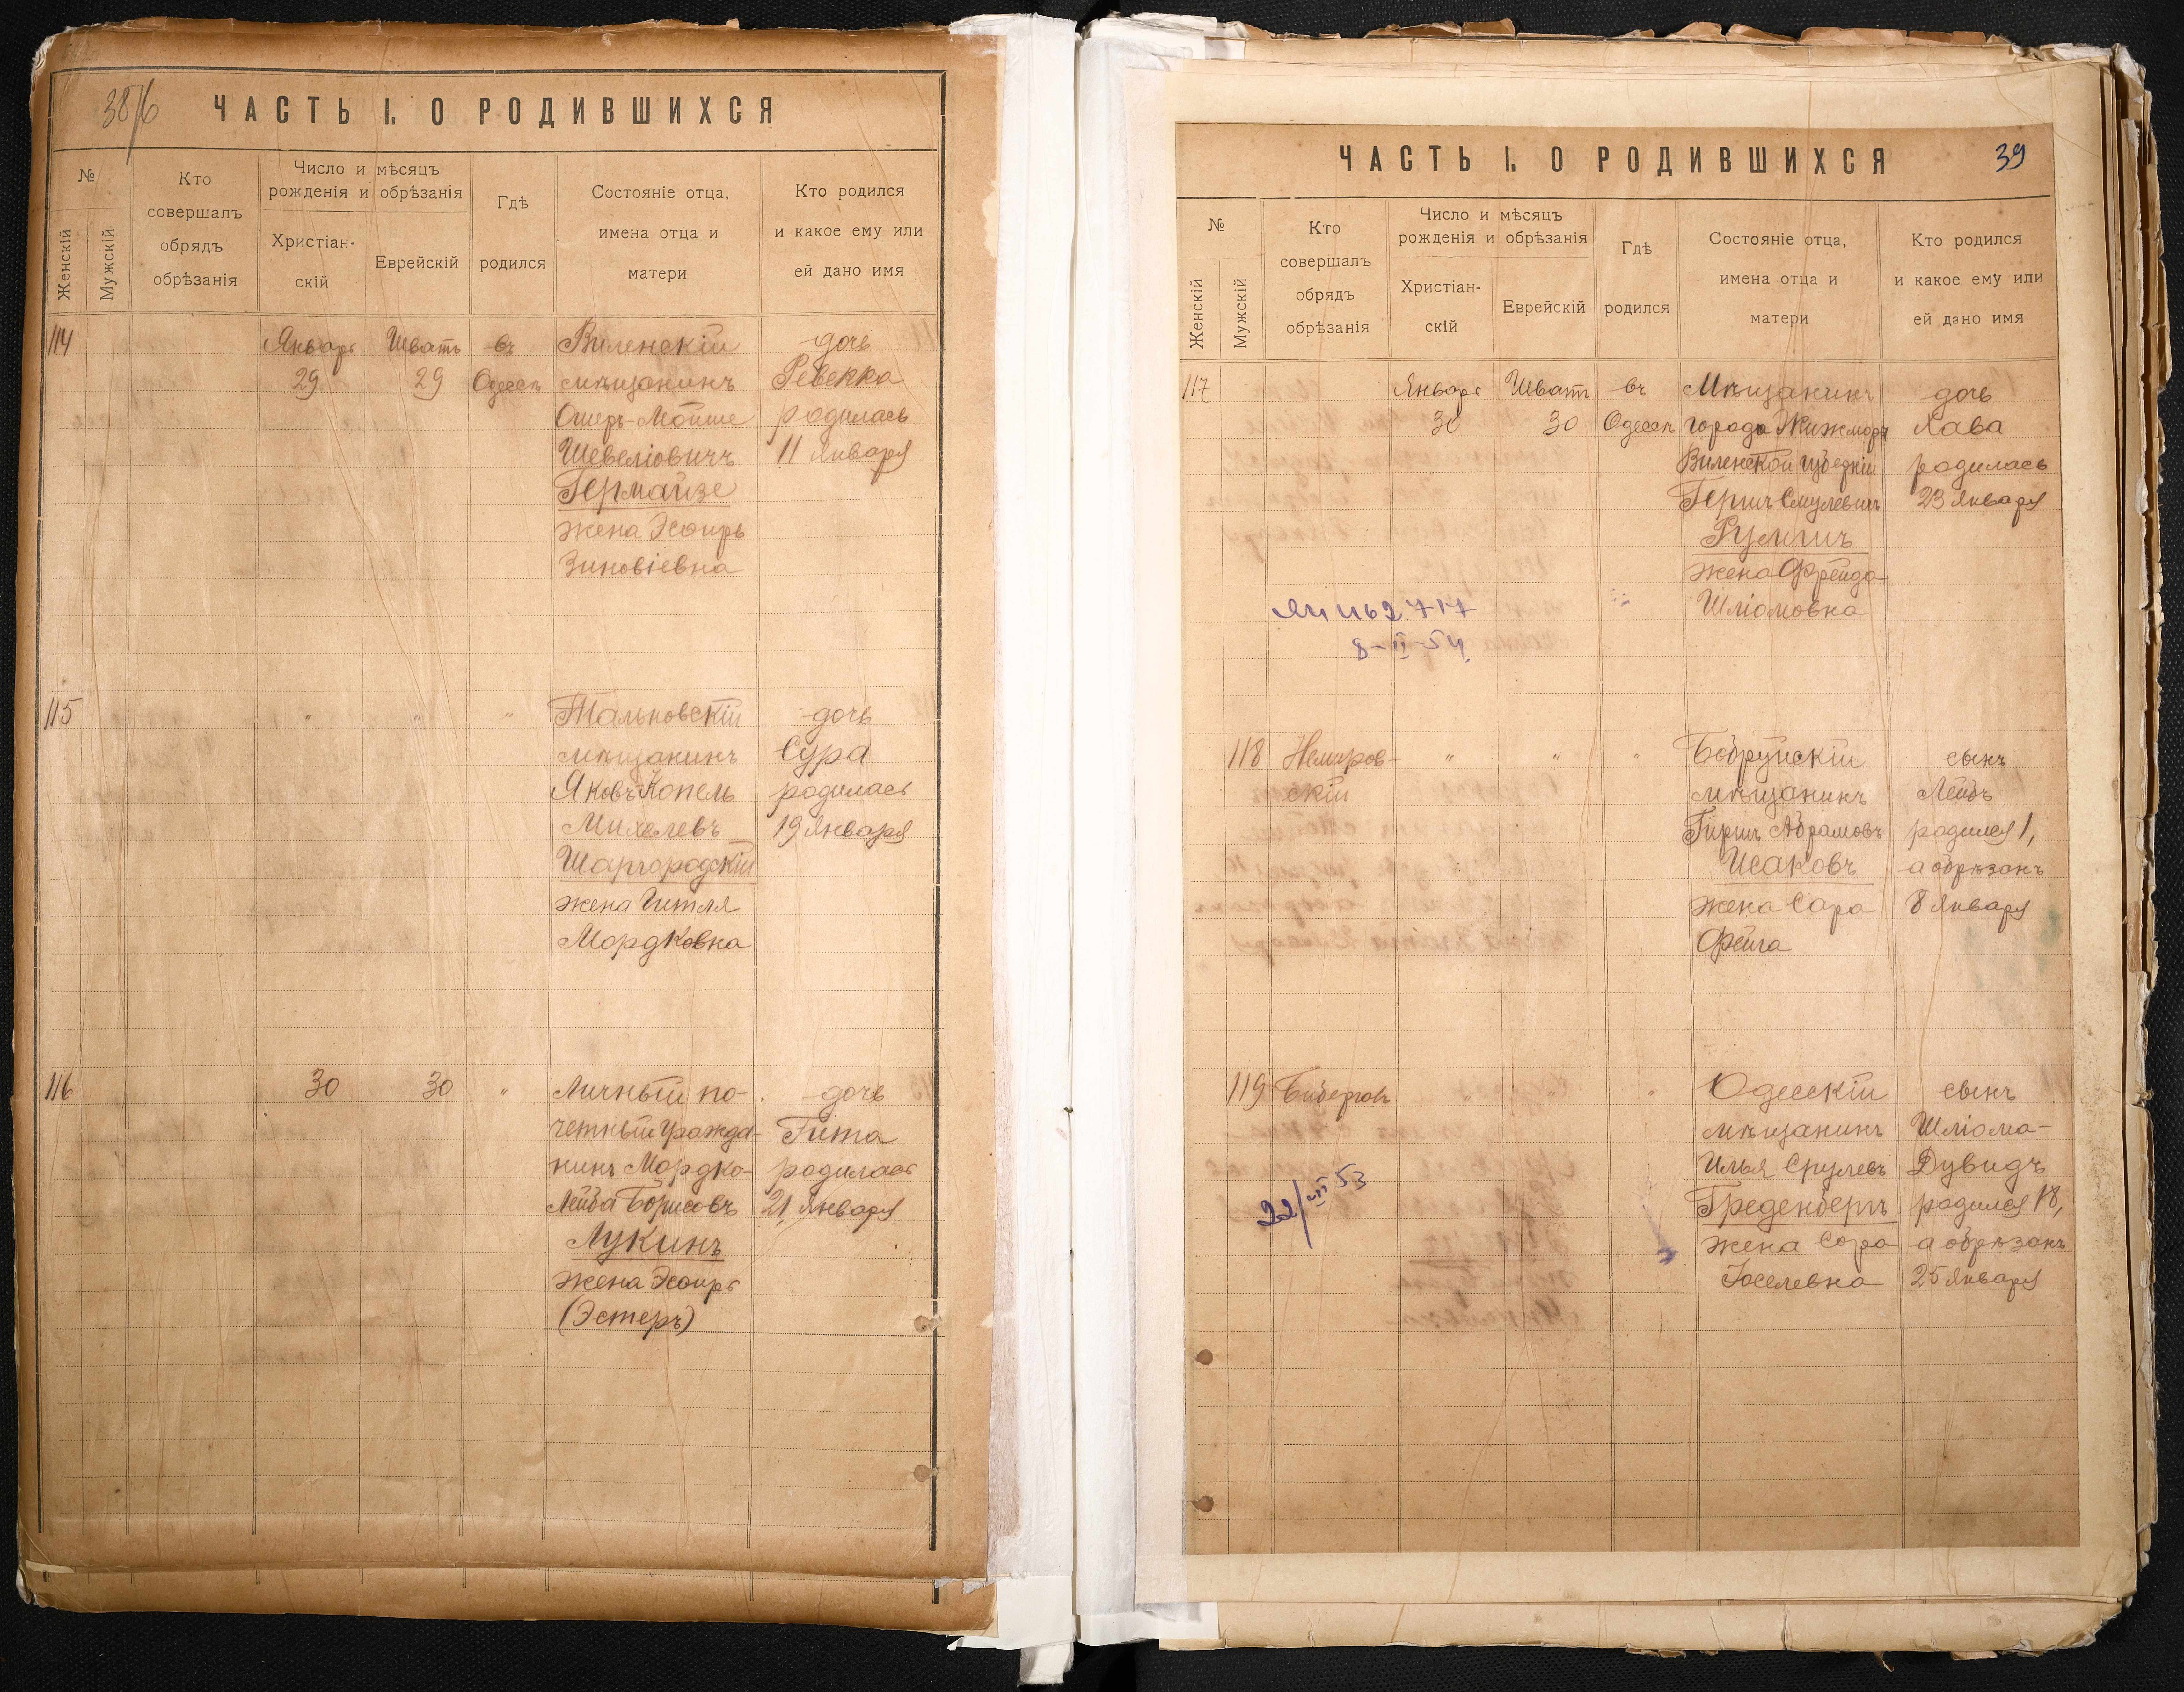 38/б
ЧАСТЬ I. О РОДИВШИХСЯ
№
Женскій
Мужскій
Кто
совершалъ
обрядъ
обрѣзанія
Число и мѣсяцъ
рожденія и обрѣзанія
Христіан-
скій
Еврейскій
Гдѣ
родился
Состояніе отца,
имена отца и
матери
Кто родился
и какое ему или
ей дано имя
114 Январь Шватъ въ Виленскій дочь
29 29 Одессѣ мѣщанинъ Ревекка
Ошеръ-Мойше родилась
Шевеліовичъ 11 Января
Гермайзе
жена Эсѳирь
Зиновіевна
115 " " " Тальновскій дочь
мѣщанинъ Сура
Яковъ Копель родилась
Михелевъ 19 Января
Шаргородскій
жена Гитля
Мордковна
116 30 30 " Личный по- дочь
четный гражда- Гита
нинъ Мордко- родилась
Лейба Борисовъ 21 Января
Лукинъ
жена Эсѳирь
(Эстеръ)
ЧАСТЬ I. О РОДИВШИХСЯ
39
№
Женскій
Мужскій
Кто
совершалъ
обрядъ
обрѣзанія
Число и мѣсяцъ
рожденія и обрѣзанія
Христіан-
скій
Еврейскій
Гдѣ
родился
Состояніе отца,
имена отца и
матери
Кто родился
и какое ему или
ей дано имя
117 Январь Шватъ въ Мѣщанинъ дочь
30 30 Одессѣ города Жижморы Хава
Виленской губерніи родилась
Гершъ Смулевичъ 23 Января
жена Фрейда
Шліомовна
8-II-54
118 Немиров- " " " Бобруйскій сынъ
скій мѣщанинъ Лейбъ
Гиршъ Абрамовъ родился 1,
Исаковъ а обрѣзанъ
жена Сара 8 Января
Фейга
119 " " " Одесскій сынъ
мѣщанинъ Шліома-
Илья Срулевъ Дувидъ
Греденбергъ родился 18,
жена Сора а обрѣзанъ
Іоселевна 25 Января
22/VII 53